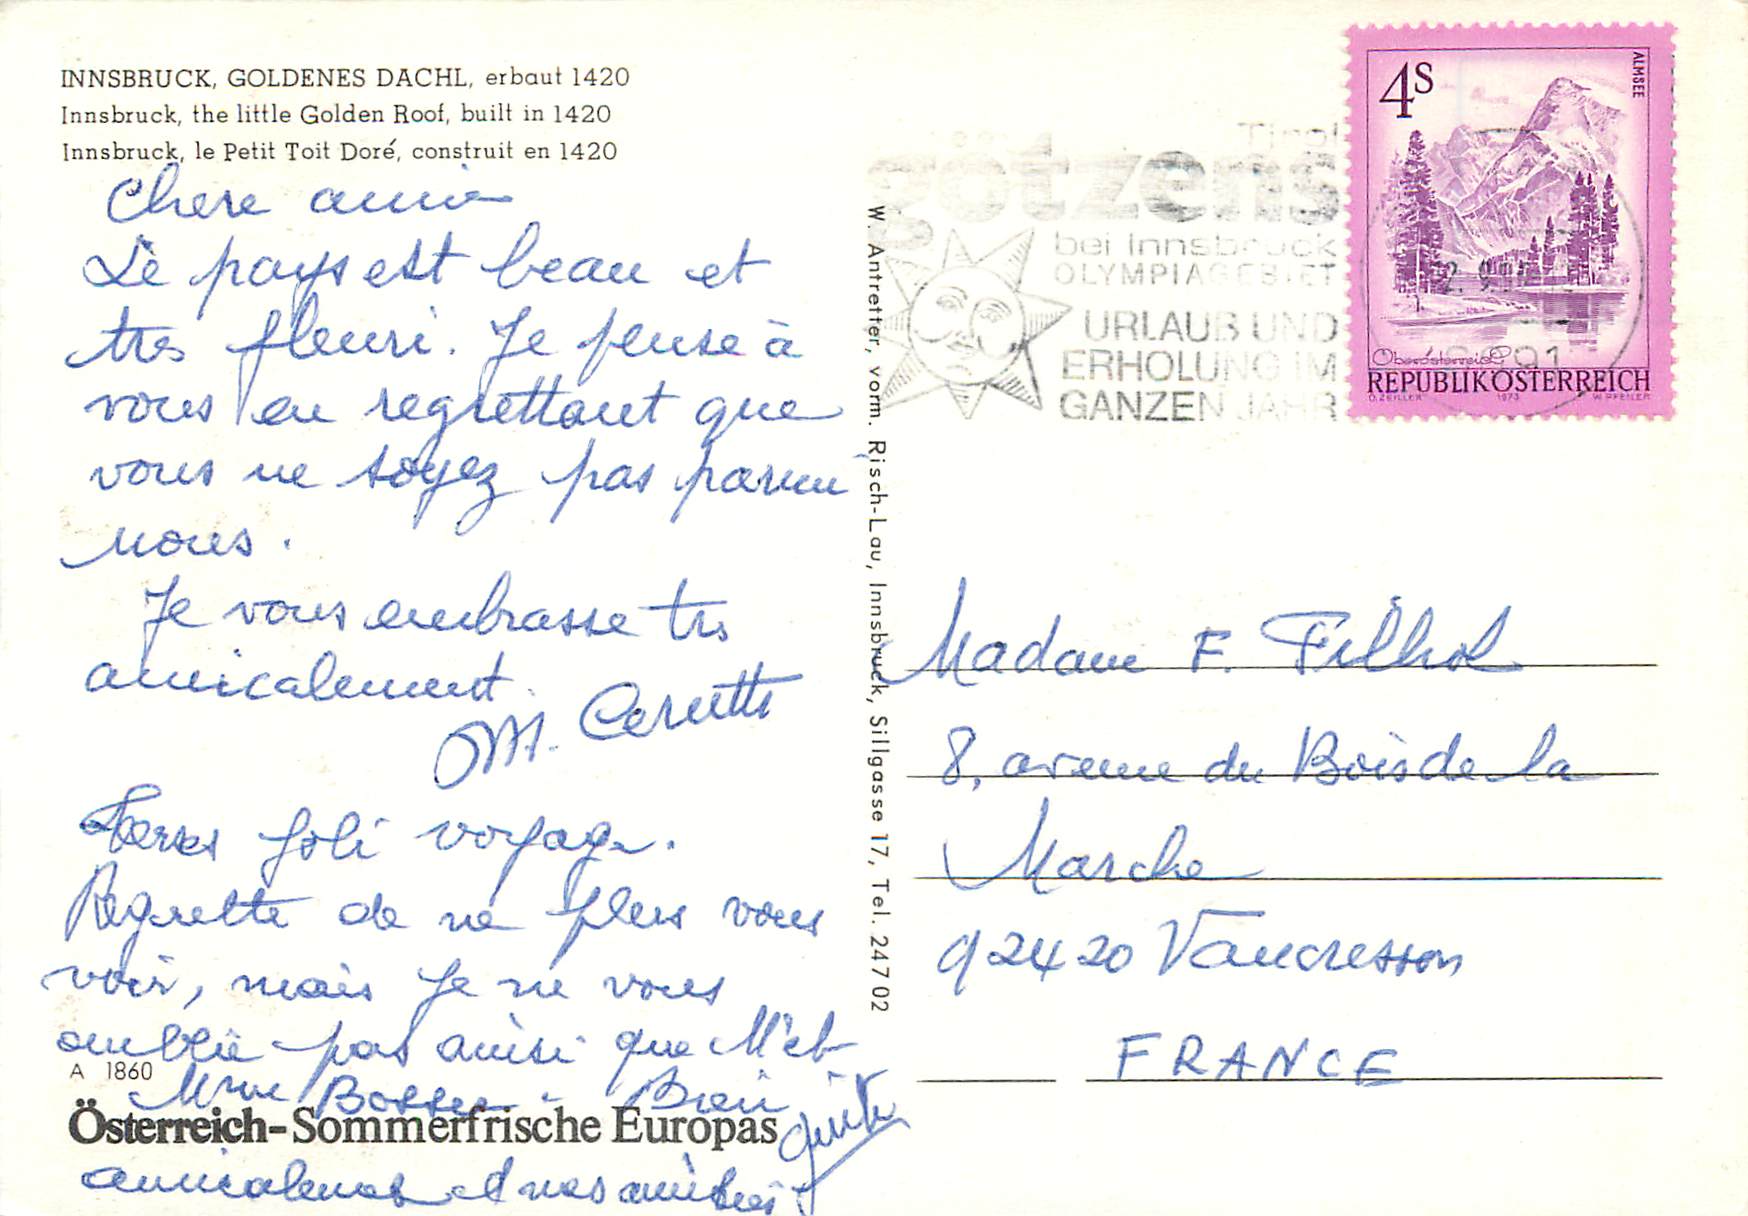 INNSBRUCK, GOLDENES DACHL, erbaut 1420
Innsbruck, the little Golden Roof, built in 1420
Innsbruck, le Petit Toit Doré, construit en 1420
Chere amie
Le pays est beau et
tres fleuri. Je pense à
vous en regrettant que
vous ne soyez pas parmi
nous.
Je vous embrasse tres
amicalement.
M. Cerutti
Tres joli voyage.
Regrette de ne plus vous
voir, mais je ne vous
oublie pas ainsi que M et
Mme Bosser - Bien
amicalement et nos amitiés
A 1860
Österreich-Sommerfrische Europas
W. Antretter, vorm. Risch-Lau, Innsbruck, Sillgasse 17, Tel. 247 02
Tirol
götzens
bei Innsbruck
OLYMPIAGEBIET
URLAUB UND
ERHOLUNG IM
GANZEN JAHR
4S
ALMSEE
Oberösterreich
REPUBLIK ÖSTERREICH
O. ZEILLER 1973 W. PFEILER
Madame F. Filhol
8, avenue du Bois de la
Marche
92420 Vaucresson
FRANCE